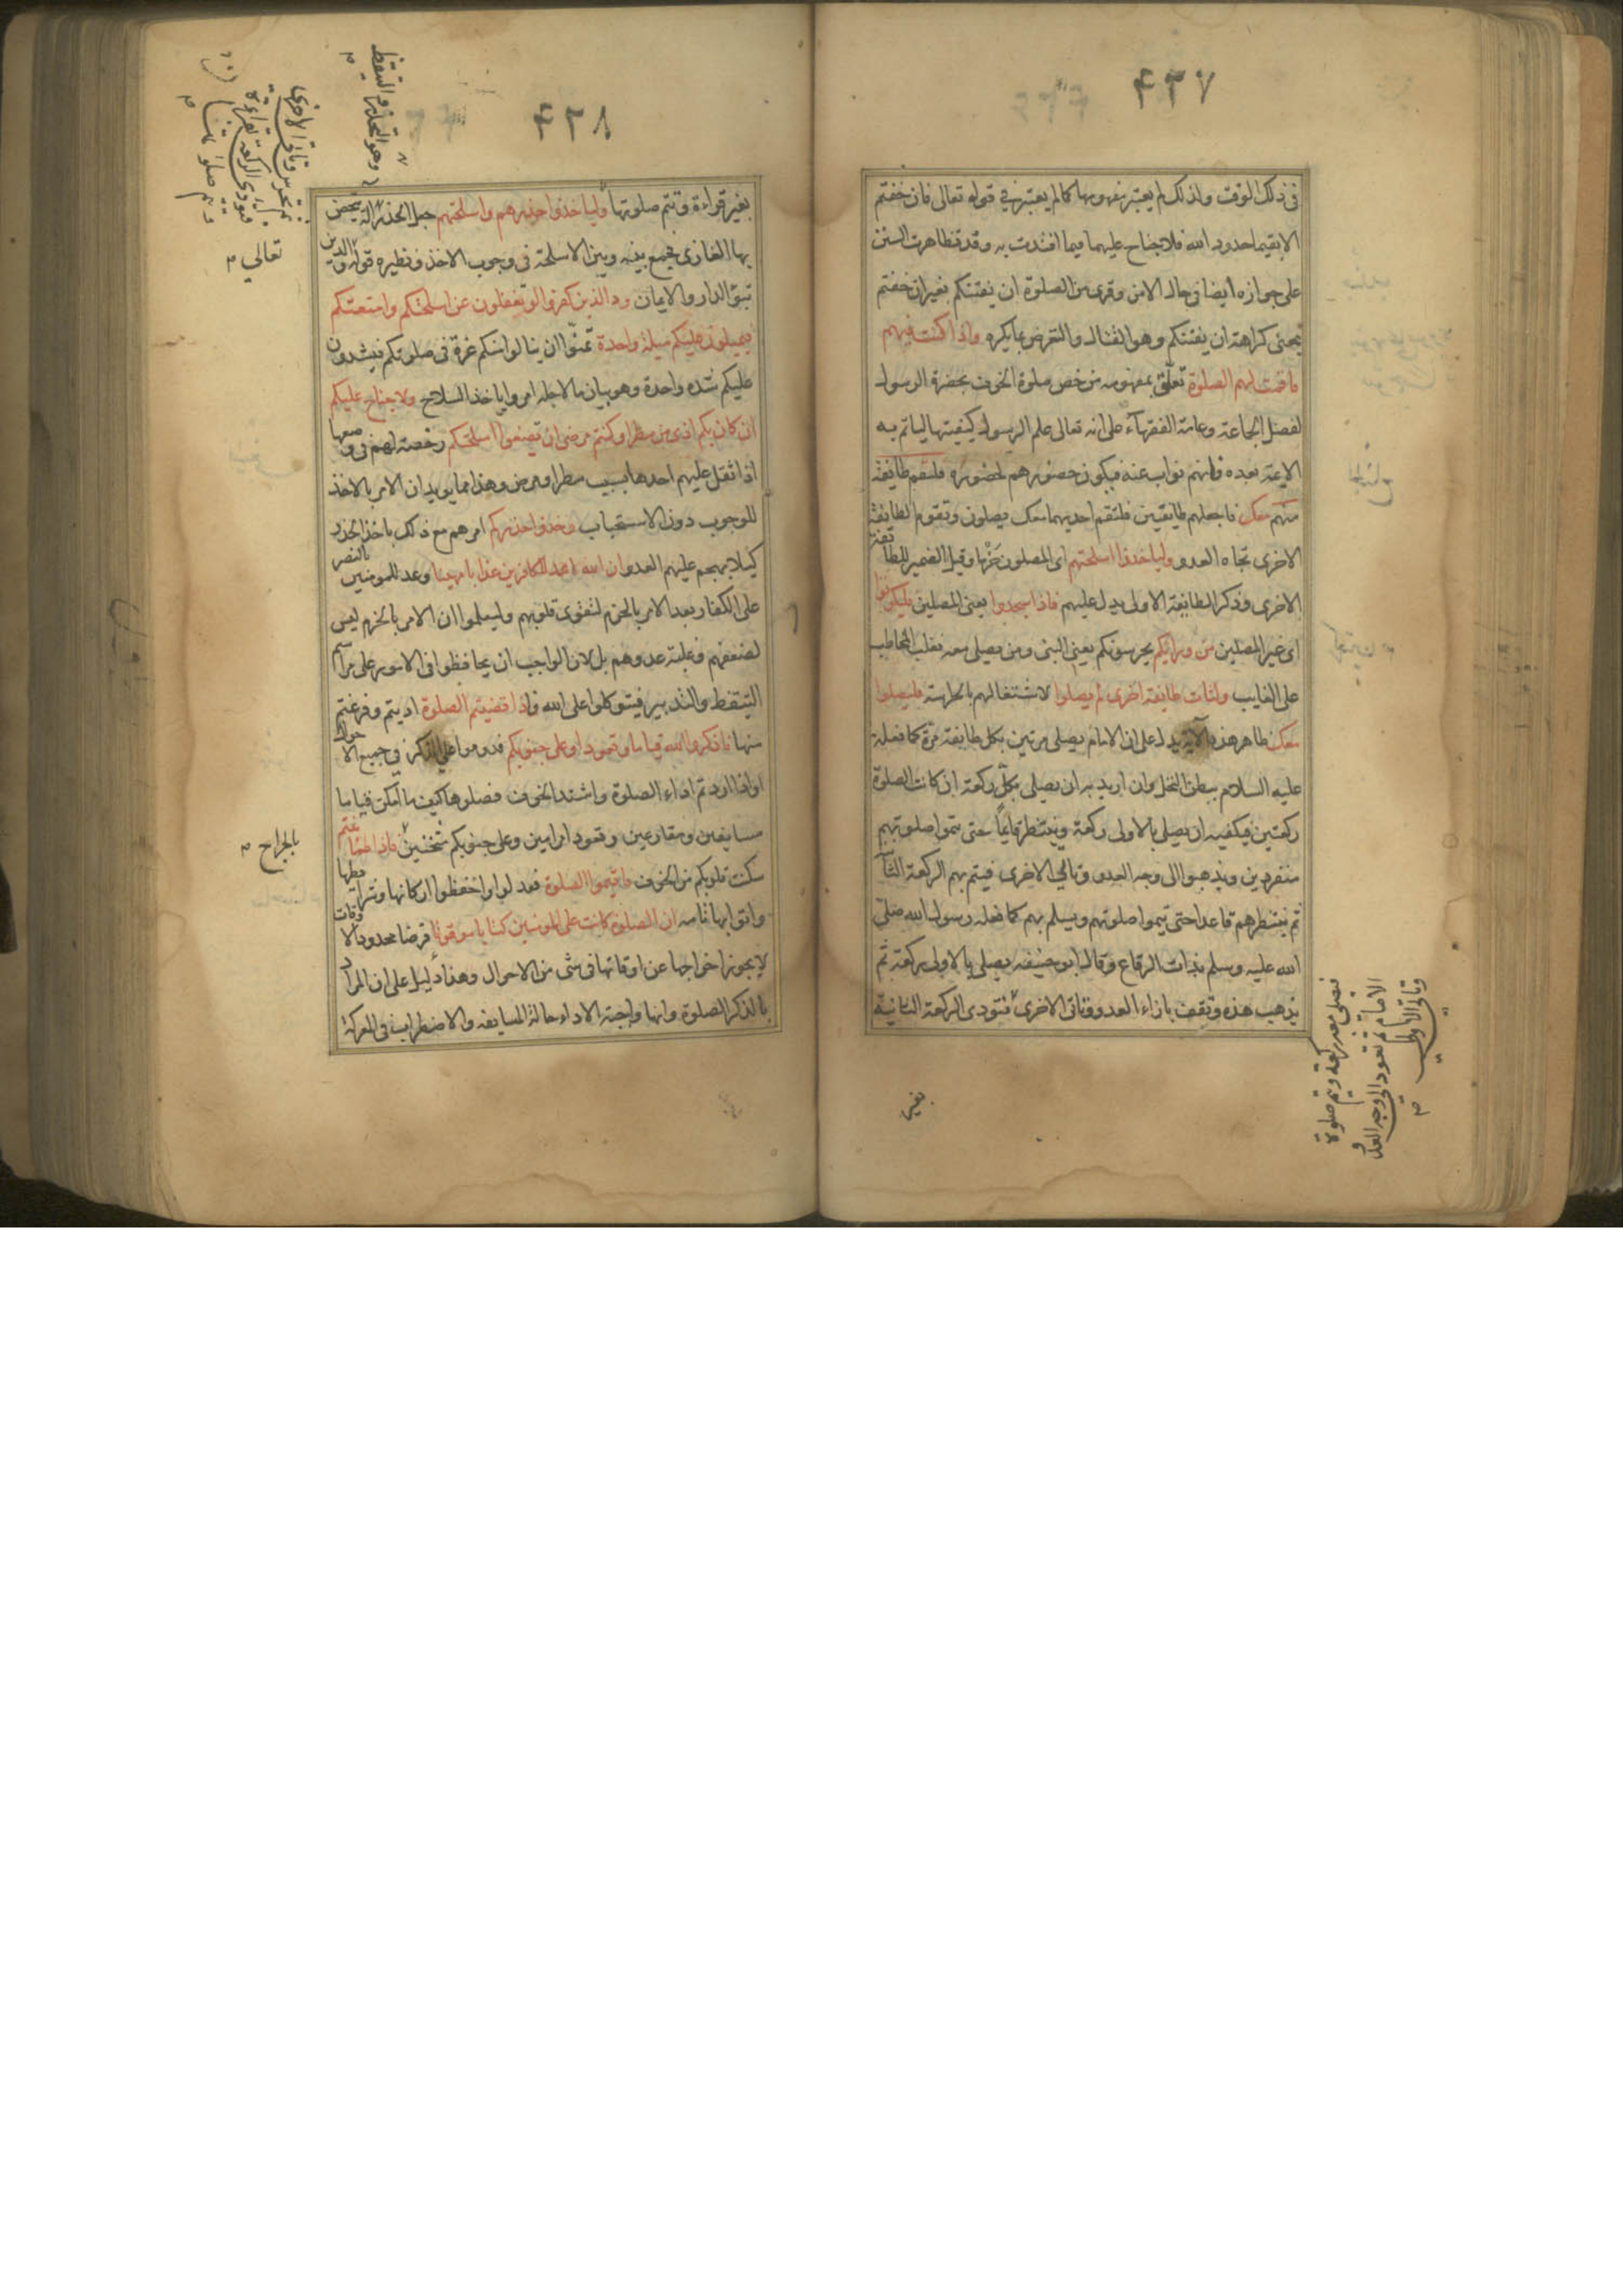 ٤٣٧
فى ذلك الوقت ولذلك لم يعتبر مفهومها كما لم يعتبر فى قوله تعالى فان خفتم
الا يقيما حدود الله فلا جناح عليهما فيما افتدت به وقد تظاهرت السنن
على جوازه ايضا فى حال الامن وقرى من الصلوة ان يفتنكم بغير ان خفتم
بمعنى كراهة ان يفتنكم وهو القتال والتعرض بما يكره واذا كنت فيهم
فاقمت لهم الصلوة تعلق بمفهومه من خص صلوة الخوف بحضرة الرسول
لفضل الجماعة وعامة الفقهاء على انه تعالى علم الرسول كيفيتها لياتم به
الائمة بعده فانهم نواب عنه فيكون حضورهم كحضوره فلتقم طايفة
منهم معك فاجعلهم طايفتين فلتقم احديهما معك يصلون وتقوم الطايفة
الاخرى تجاه العدو ولياخذوا اسلحتهم اى المصلون حزما وقيل الضمير للطائفة
الاخرى وذكر الطايفة الاولى يدل عليهم فاذا سجدوا يعنى المصلين فليكونوا
اى غير المصلين من ورائكم يحرسونكم يعنى النبى ومن يصلى معه فغلب المخاطب
على الغايب ولتات طايفة اخرى لم يصلوا لاشتغالهم بالحراسة فليصلوا
معك ظاهر هذه الآية يدل على ان الامام يصلى مرتين بكل طايفة مرة كما فعله
عليه السلام ببطن النخل وان اريد به ان يصلى بكل ركعة ان كانت الصلوة
ركعتين فكيفيته ان يصلى بالاولى ركعة وينتظر قايما حتى يتموا صلوتهم
منفردين ويذهبوا الى وجه العدو وتاتى الاخرى فيتم بهم الركعة الثا
ثم ينتظرهم قاعدا حتى يتموا صلوتهم ويسلم بهم كما فعله رسول الله صلى
الله عليه وسلم بذات الرقاع وقال ابو حنيفه يصلى بالاولى ركعة ثم
يذهب هذه وتقف بازاء العدو وتاتى الاخرى فتودى الركعة الثانية
وتاتى الاولى
الامام ثم تعود الى وجه العدو
فتصلى معه ركعة ويتم صلوة
بغير
٤٣٨
وهو التحذر والتيقظ
ثم تحرس وتاتى الاخرى
فتودى الركعة بقراءة
وتتم صلوتها
بغير قراءة وتتم صلوتها ولياخذوا حذرهم واسلحتهم جعل الحذر الة يتحصن
بها الغازى فجمع بينه وبين الاسلحة فى وجوب الاخذ ونظيره قوله والذين
تعالى
تبوؤ الدار والايمان ود الذين كفروا لو تغفلون عن اسلحتكم وامتعتكم
فيميلون عليكم ميلة واحدة تمنوا ان ينالوا منكم غرة فى صلوتكم فيشدون
عليكم شدة واحدة وهو بيان ما لاجله امروا باخذ السلاح ولا جناح عليكم
ان كان بكم اذى من مطر او كنتم مرضى ان تضعوا اسلحتكم رخصة لهم فى وضعها
اذا ثقل عليهم اخذها بسبب مطر او مرض وهذا مما يويد ان الامر بالاخذ
للوجوب دون الاستحباب وخذوا حذركم امرهم مع ذلك باخذ الحذر
كيلا يهجم عليهم العدو ان الله اعد للكافرين عذابا مهينا وعد للمومنين بالنصر
على الكفار بعد الامر بالحزم لتقوى قلوبهم وليعلموا ان الامر بالحزم ليس
لضعفهم وغلبة عدوهم بل لان الواجب ان يحافظوا فى الامور على مراسم
التيقظ والتدبير فيتوكلوا على الله فاذا قضيتم الصلوة اديتم وفرغتم
منها فاذكروا الله قياما وقعودا وعلى جنوبكم فدوموا على الذكر فى جميع الاحوال
او اذا اردتم اداء الصلوة واشتد الخوف فصلوها كيف ما امكن قياما
مسايفين ومقارعين وقعودا مرامين وعلى جنوبكم مثخنين فاذا اطمأننتم
بالجراح
سكنت قلوبكم من الخوف فاقيموا الصلوة فعدلوا واحفظوا اركانها وشرائطها
واتوا بها تامه ان الصلوة كانت على المومنين كتابا موقوتا فرضا محدود الاوقات
لا يجوز اخراجها عن اوقاتها فى شى من الاحوال وهذا دليل على ان المراد
بالذكر الصلوة وانها واجبة الاداء حالة المسايفة والاضطراب فى المعركة